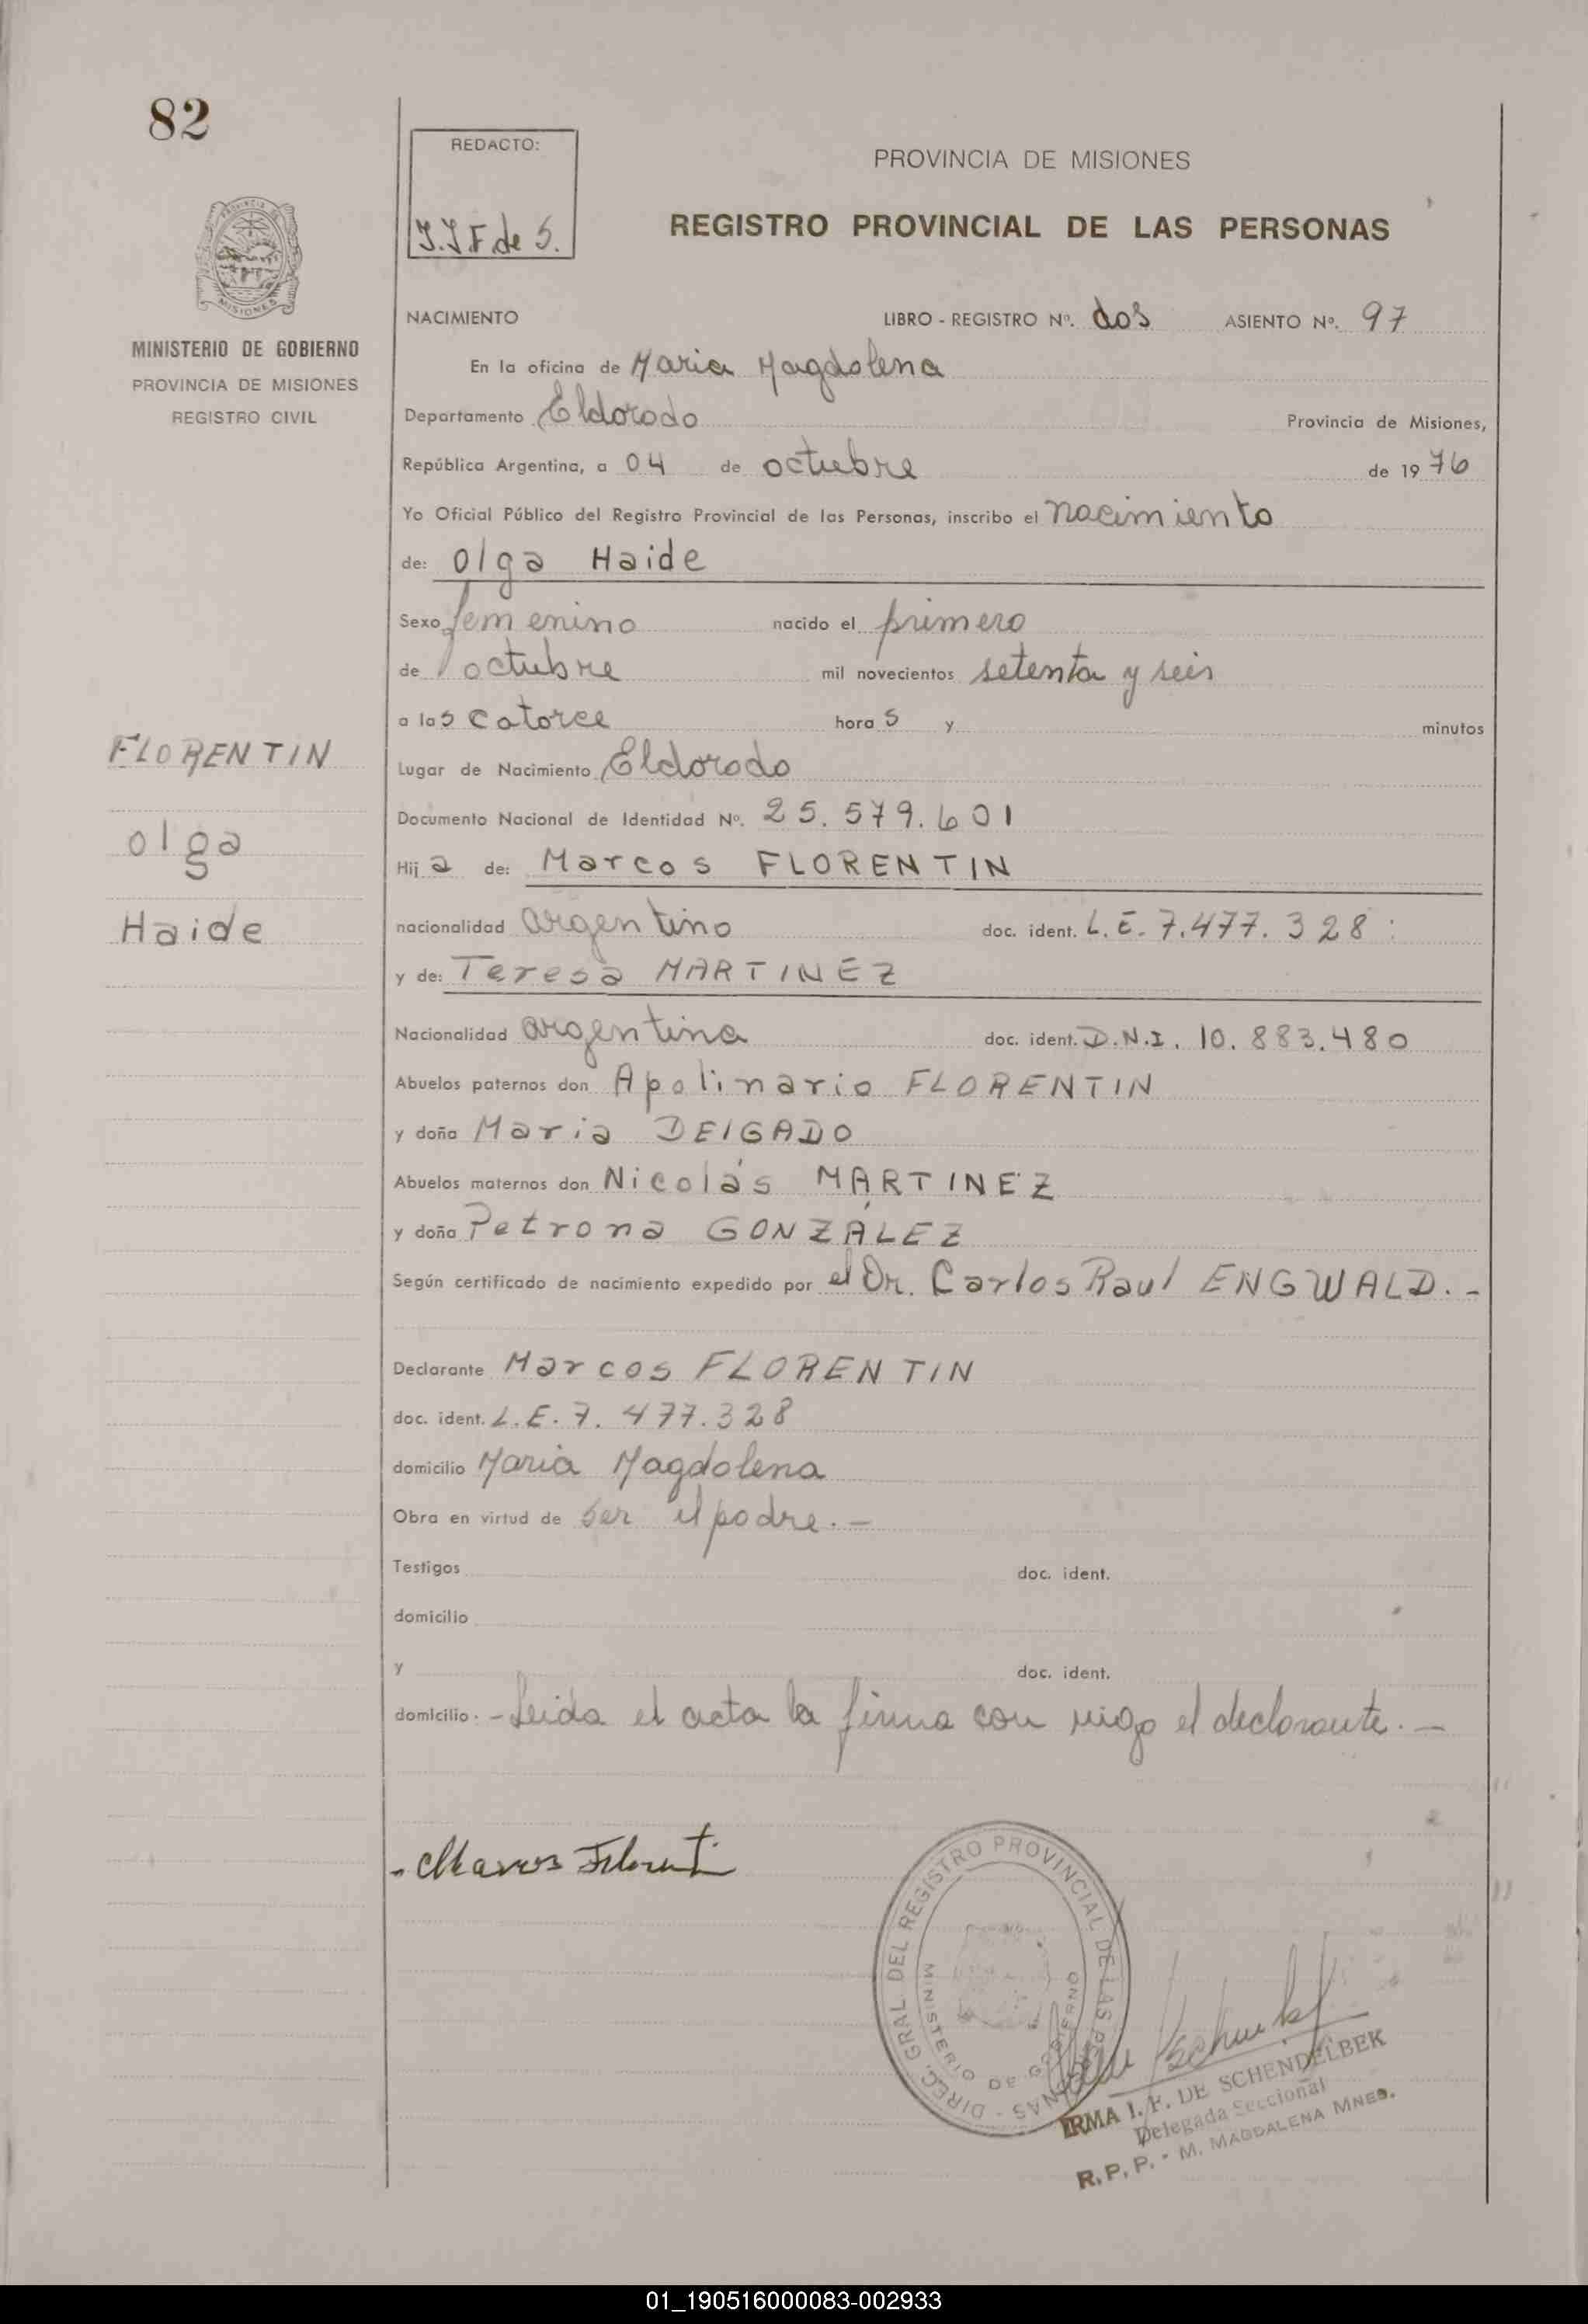 82
REDACTO:
PROVINCIA DE MISIONES
REGISTRO PROVINCIAL DE LAS PERSONAS
MINISTERIO DE GOBIERNO
PROVINCIA DE MISIONES
REGISTRO CIVIL
NACIMIENTO LIBRO - REGISTRO Nº. dos ASIENTO Nº. 97
En la oficina de Maria Magdalena
Departamento Eldorado Provincia de Misiones,
República Argentina, a 04 de octubre de 1976
Yo Oficial Público del Registro Provincial de las Personas, inscribo el nacimiento
de: Olga Haide
Sexo femenino nacido el primero
de octubre mil novecientos setenta y seis
a las catorce horas y minutos
Lugar de Nacimiento Eldorado
Documento Nacional de Identidad Nº. 25.579.601
Hija de: Marcos FLORENTIN
nacionalidad argentino doc. ident. L.E. 7.477.328
y de: Teresa MARTINEZ
Nacionalidad argentina doc. ident. D.N.I. 10.883.480
Abuelos paternos don Apolinario FLORENTIN
y doña Maria DElGADO
Abuelos maternos don Nicolás MARTINEZ
y doña Petrona GONZÁLEZ
Según certificado de nacimiento expedido por el Dr. Carlos Raul ENGWALD.-
Declarante Marcos FLORENTIN
doc. ident. L.E. 7.477.328
domicilio Maria Magdalena
Obra en virtud de ser el padre.-
Testigos doc. ident.
domicilio
y doc. ident.
domicilio. - Leida el acta la firma con migo el declarante.-
FLORENTIN
Olga
Haide
Marcos Florentin
DIREC. GRAL. DEL REGISTRO PROVINCIAL DE LAS PERSONAS
MINISTERIO DE GOBIERNO
IRMA I. F. DE SCHENDELBEK
Delegada Seccional
R.P.P. - M. MAGDALENA MNES.
01_190516000083-002933